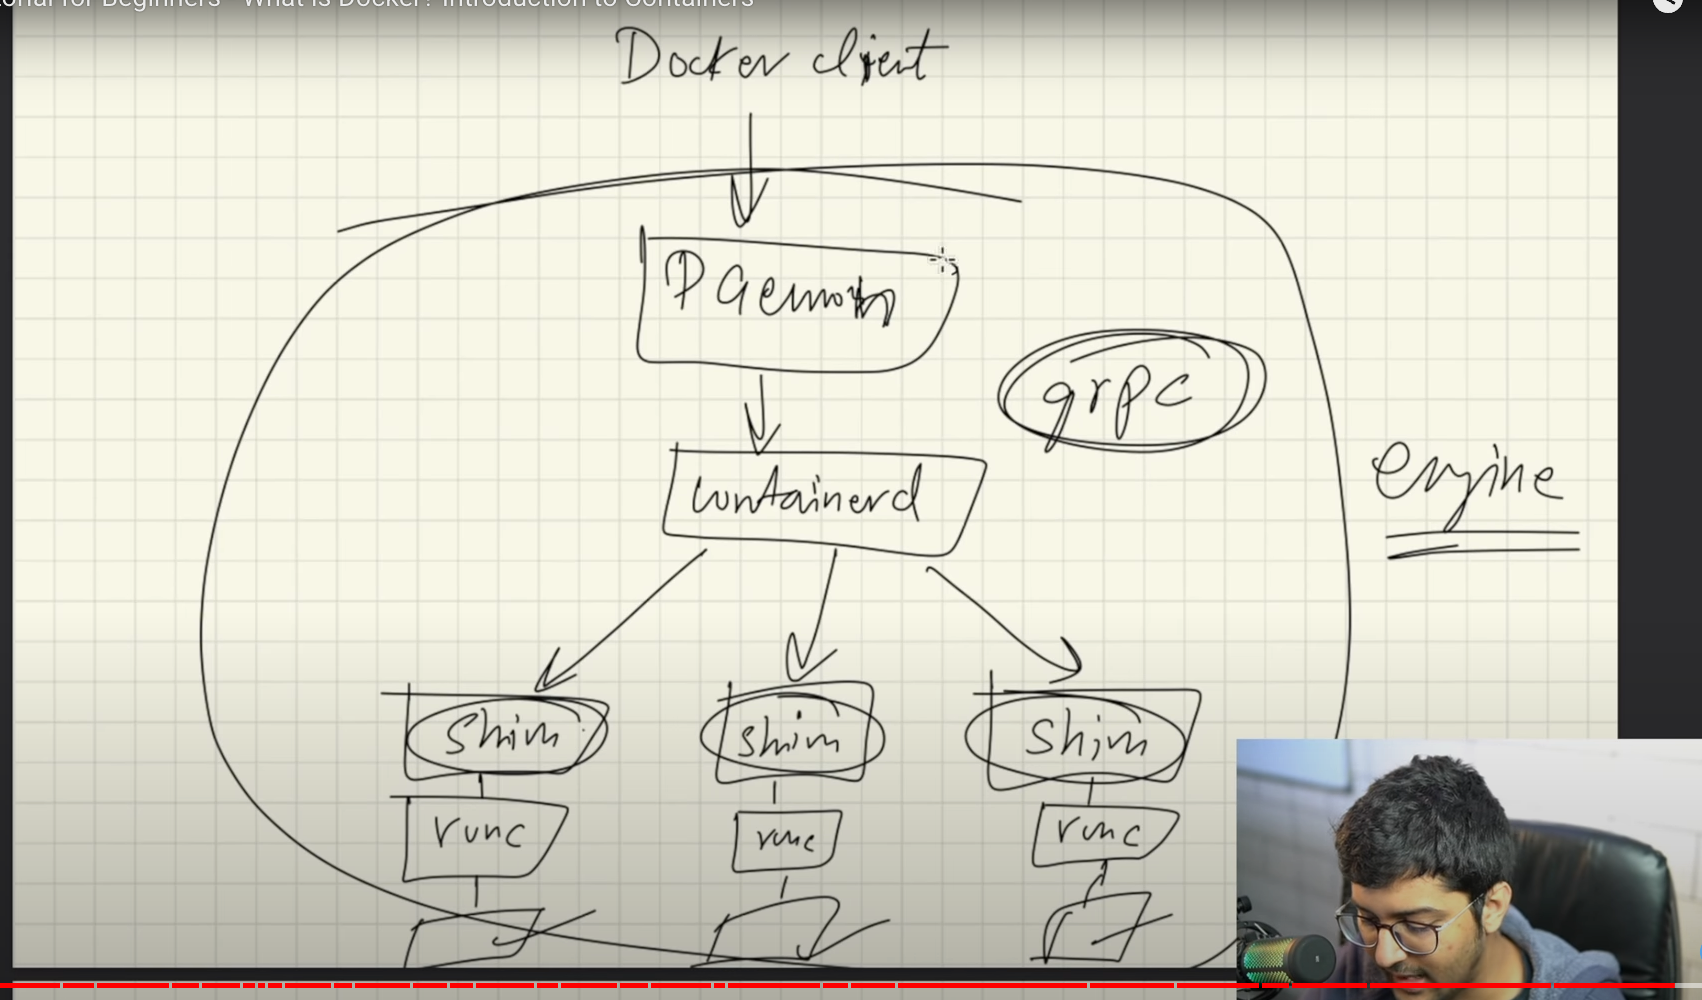 Tutorial for Beginners - What is Docker? Introduction to Containers
Docker client
Daemon
grpc
containerd
engine
shim
shim
shim
runc
runc
runc